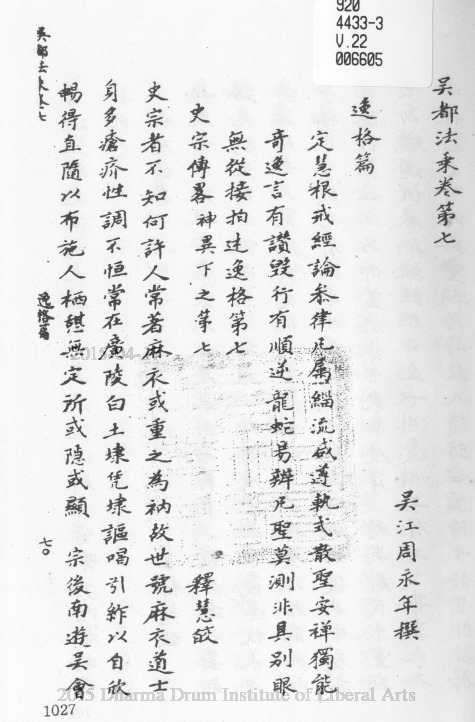 920
4433-3
V.22
006605
吳都法乘卷第七
吳江周永年撰
逸格篇
定慧根戒經論叅律凡屬緇流咸遵執式散聖安禪獨能
奇逸言有讚毀行有順逆龍蛇易辨凡聖莫測非具别眼
無從接拍述逸格第七
史宗傳畧神異下之第七
釋慧皎
史宗者不知何許人常著麻衣或重之為衲故世號麻衣道士
身多瘡疥性調不恒常在廣陵白土埭凭埭謳唱引䋏以自欣
暢得直隨以布施人栖憇無定所或隐或顯 宗後南遊吳會
吳都法乘卷七
逸格篇
七〇
1027
2015 Dharma Drum Institute of Liberal Arts